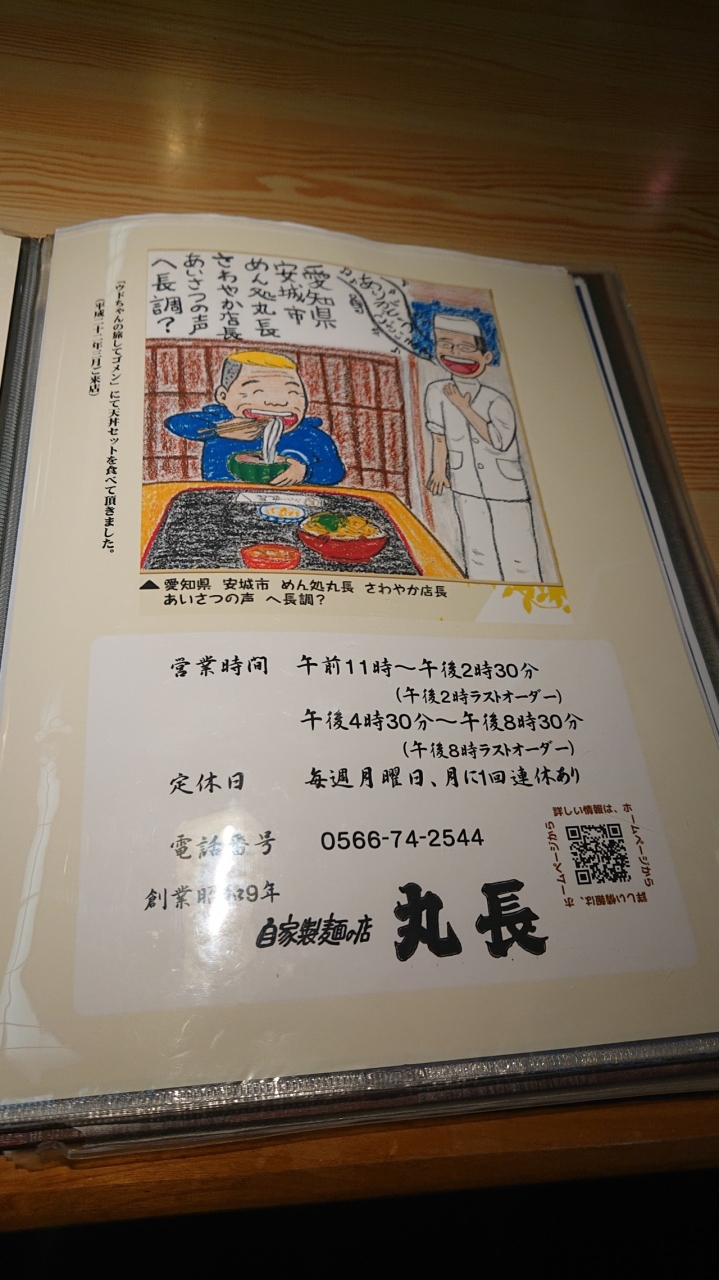 愛知県
安城市
めん処丸長
さわやか店長
あいさつの声
へ長調?
「ウドちゃんの旅してゴメン」にて天丼セットを食べて頂きました。
(平成二十二年三月ご来店)
▲愛知県 安城市 めん処丸長 さわやか店長
あいさつの声 へ長調?
営業時間 午前11時〜午後2時30分
(午後2時ラストオーダー)
午後4時30分〜午後8時30分
(午後8時ラストオーダー)
定休日 毎週月曜日、月に1回連休あり
電話番号 0566-74-2544
詳しい情報は、ホームページから
詳しい情報は、ホームページから
創業昭和9年
自家製麺の店 丸長